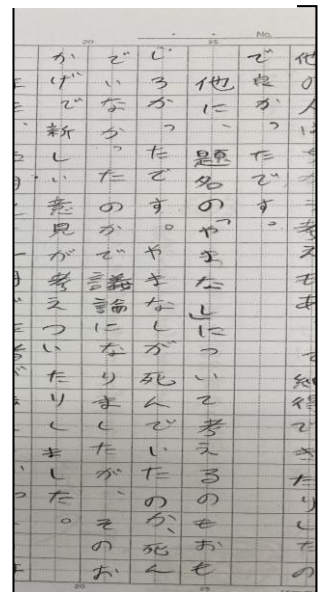 No.
20
25
他の
考えもあ
て納得できたりしたの
で良かったです。
他に、題名の「やまなし」について考えるのもおも
しろかったです。やまなしが死んでいたのか、死ん
でいなかったのかで議論になりましたが、そのお
かげで新しい意見が考えついたりしました。
20
25